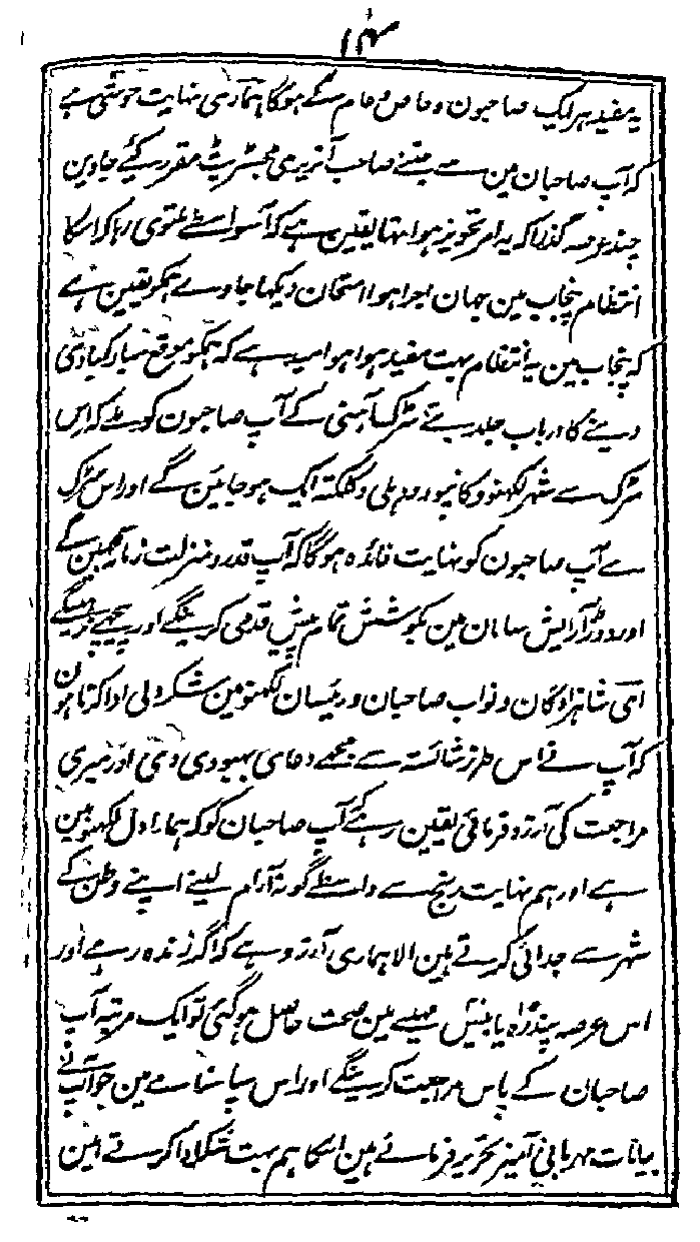 ۱۴
یہ مفید ہر ایک صاحبون وخاص وعام کے ہوگا ہماری نہایت خوشی ہے
کہ آپ صاحبان مین سے جتنے صاحب آنریری مجسٹریٹ مقرر کیئے جاوین
چند عرصہ گذرا کہ یہ امر تجویز ہوا تہا یقین ہے کہ آسواسطے ملتوی رہا کہ اسکا
انتظام پنجاب مین جہان اجرا ہوا امتحان دیکہا جاوے ہمکو یقین ہے
کہ پنجاب مین یہ انتظام بہت مفید ہوا ہوا امید ہے کہ ہمکو موقع مبارکبادی
دینے کا درباب جلد بننے سڑک آہنی کے آپ صاحبون کو ملے کہ اس
سڑک سے شہر لکہنو و کانپور و دہلی و کلکتہ ایک ہو جائین گے اور اس سڑک
سے آپ صاحبون کو نہایت فائدہ ہوگا کہ آپ قدر و منزلت زمانہ سمجہین گے
اور دوڑ آرایش سامان مین بکوشش تمام پیش قدمی کرینگے اور پیچہے نرہینگے
ای شاہزادگان و نواب صاحبان و رئیسان لکہنو مین شکر دلی ادا کرتا ہون
کہ آپ نے اس طرز شائستہ سے مجہے دعای بہبودی دی اور میری
مراجعت کی آرزو فرمائی یقین رہے کہ آپ صاحبان کو کہ ہمارا دل لکہنو مین
ہے اور ہم نہایت رنج سے واسطے گونہ آرام لینے اپنے وطن کے
شہر سے جدائی کرتے ہین الا ہماری آرزو ہے کہ اگر زندہ رہے اور
اس عرصہ پندراہ یا بیس مہینے مین صحت حاصل ہو گئی تو ایک مرتبہ آپ
صاحبان کے پاس مراجعت کرینگے اور اس سپاسنامے مین جو آپ نے
بیانات مہربانی آمیز تحریر فرمائے ہین اسکا ہم بہت شکر ادا کرتے ہین